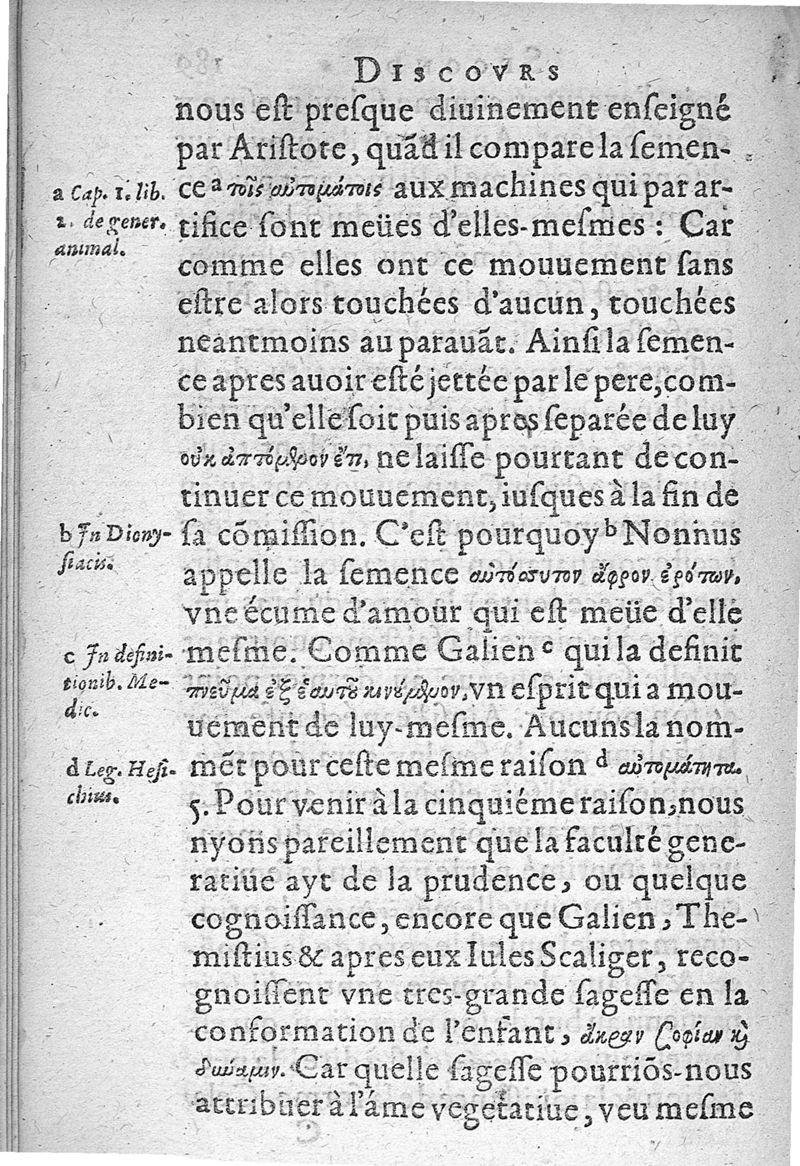 DISCOVRS
nous eſt preſque diuinement enſeigné
par Ariſtote, quãd il compare la ſemen-
a Cap. 1. lib.
2. de gener.
animal.
ce ᵃ τοῖς αὐτομάτοις aux machines qui par ar-
tifice ſont meües d'elles-meſmes : Car
comme elles ont ce mouuement ſans
eſtre alors touchées d'aucun, touchées
neantmoins au parauãt. Ainſi la ſemen-
ce apres auoir eſté jettée par le pere, com-
bien qu'elle ſoit puis apres ſeparée de luy
οὐκ ἁπτόμενον ἔτι, ne laiſſe pourtant de con-
tinuer ce mouuement, iuſques à la fin de
b In Diony-
ſiacis.
ſa cõmiſſion. C'eſt pourquoy ᵇ Nonnus
appelle la ſemence αὐτόσυτον ἄφρον ἐρότων,
vne écume d'amour qui eſt meüe d'elle
c In defini-
tionib. Me-
dic.
meſme. Comme Galien ᶜ qui la definit
πνεῦμα ἐξ ἑαυτοῦ κινούμενον, vn eſprit qui a mou-
uement de luy-meſme. Aucuns la nom-
d Leg. Heſi-
chius.
mẽt pour ceſte meſme raiſon ᵈ αὐτομάτητα.
5. Pour venir à la cinquiéme raiſon, nous
nyons pareillement que la faculté gene-
ratiue ayt de la prudence, ou quelque
cognoiſſance, encore que Galien, The-
miſtius & apres eux Iules Scaliger, reco-
gnoiſſent vne tres-grande ſageſſe en la
conformation de l'enfant, ἄκραν σοφίαν καὶ
δύναμιν. Car quelle ſageſſe pourriõs-nous
attribuer à l'áme vegetatiue, veu meſme